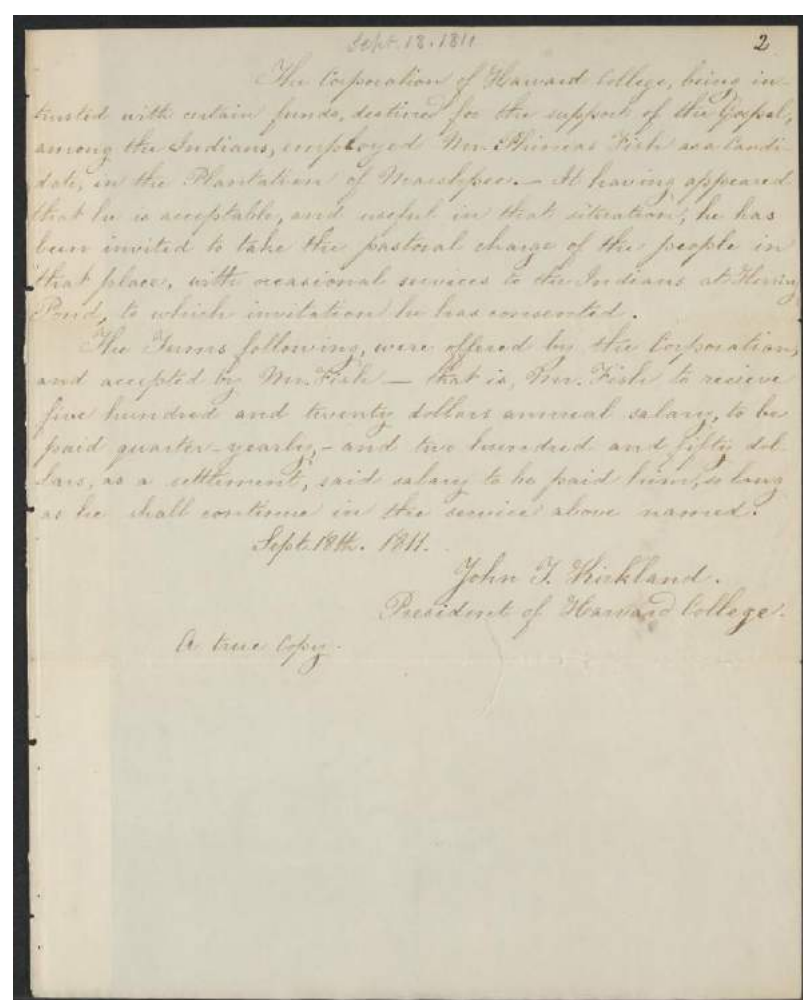 Sept. 18. 1811
2
The Corporation of Harvard College, being in-
trusted with certain funds, destined for the support of the Gospel,
among the Indians, employed Mr. Phineas Fish as a Candi-
date, in the Plantation of Marshpee. — It having appeared
that he is acceptable, and useful in that situation, he has
been invited to take the pastoral charge of the people in
that place, with occasional services to the Indians at Herring
Pond, to which invitation he has consented.
The Terms following, were offered by the Corporation,
and accepted by Mr. Fish — that is, Mr. Fish to recieve
five hundred and twenty dollars annual salary, to be
paid quarter-yearly, - and two hundred and fifty dol-
lars, as a settlement, said salary to be paid him, so long
as he shall continue in the service above named.
Sept. 18th. 1811.
John T. Kirkland.
President of Harvard College.
A true Copy.